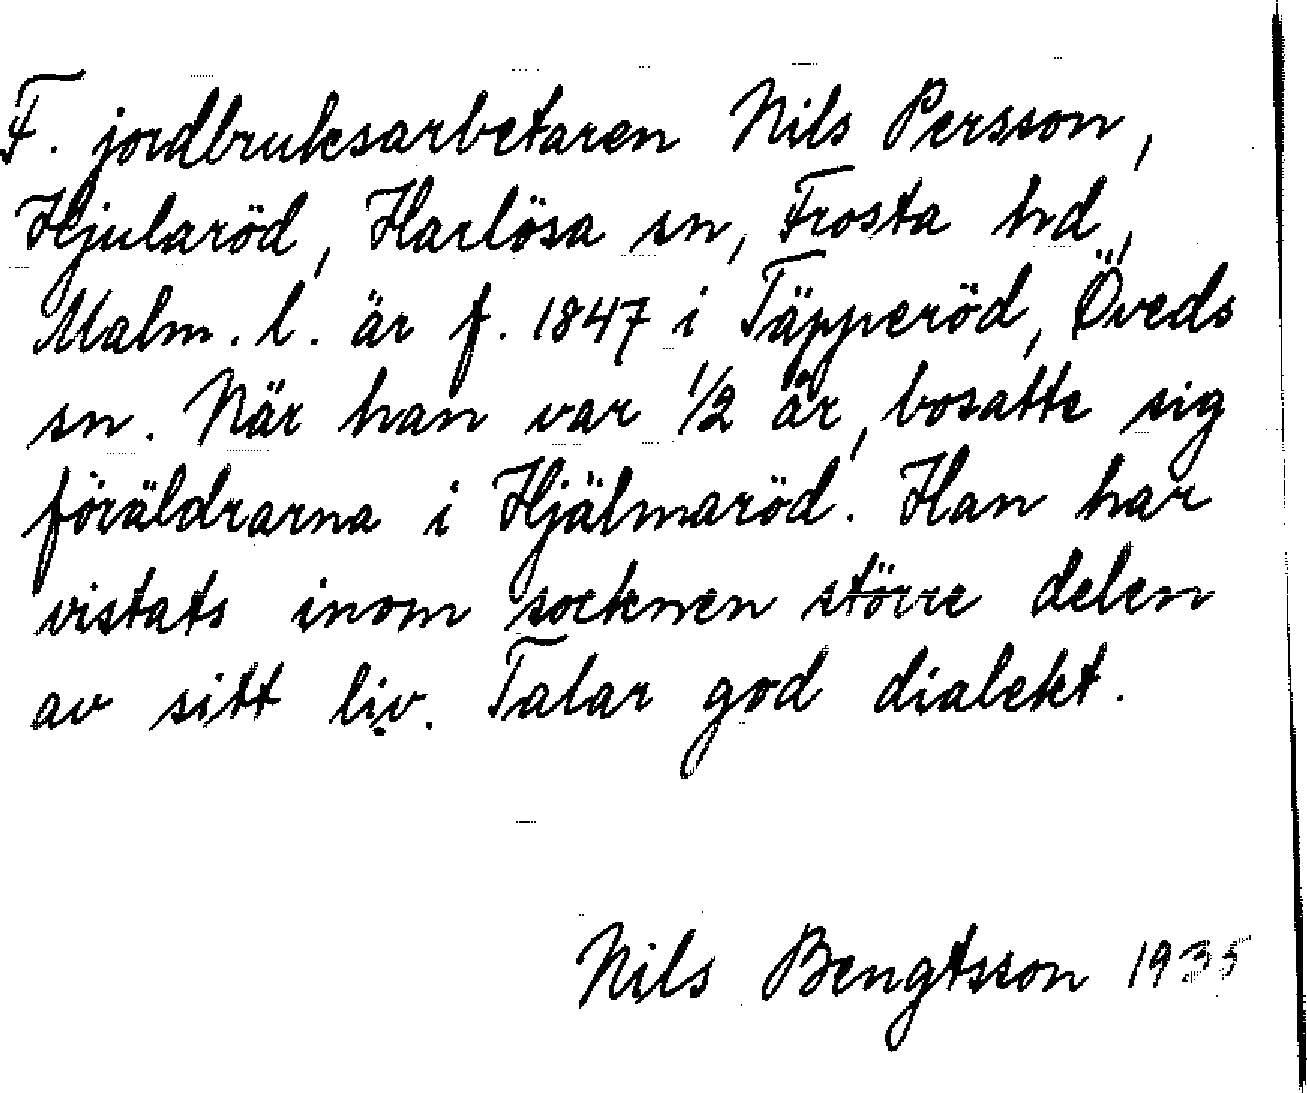 F. jordbruksarbetaren Nils Persson,
Hjularöd, Harlösa sn, Frosta hd,
Malm. l. är f. 1847 i Täpperöd, Öveds
sn. När han var 1/2 år, bosatte sig
föräldrarna i Hjälmaröd. Han har
vistats inom socknen större delen
av sitt liv. Talar god dialekt.
Nils Bengtsson 1935